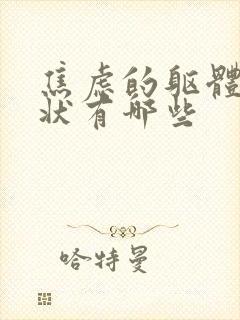 焦虑的躯體
状有哪些
哈特曼